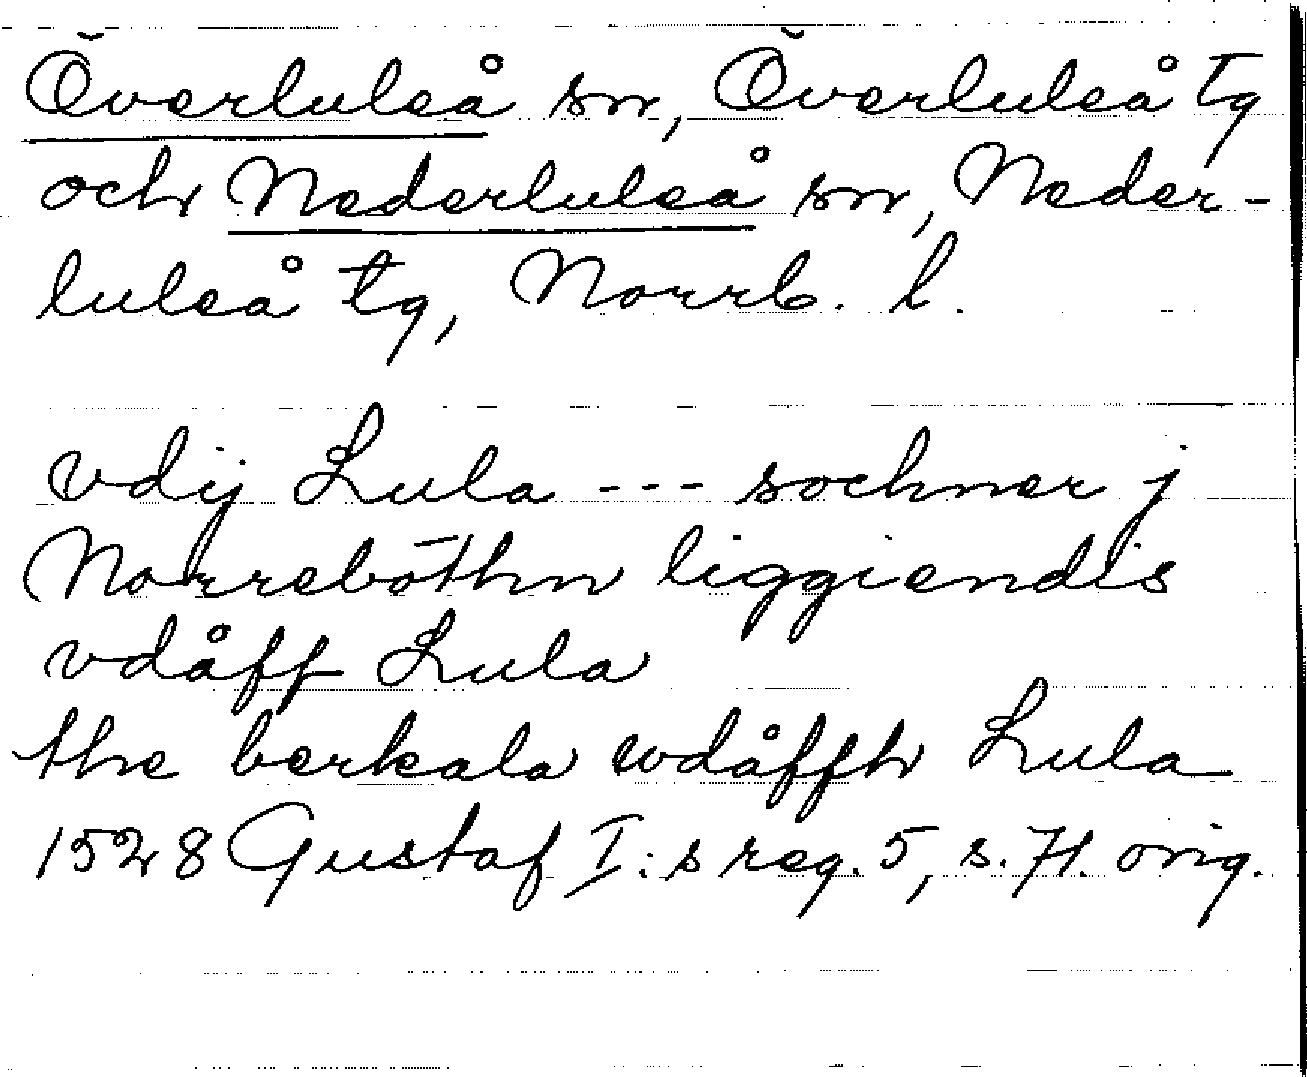 Överluleå sn, Överluleå tg
och Nederluleå sn, Neder-
luleå tg, Norrb. l.
vdij Lula --- sochner j
Norrebōthn liggiendis
vdåff Lula
the berkala wdåffh Lula
1528 Gustaf I:s reg. 5, s. 71. orig.